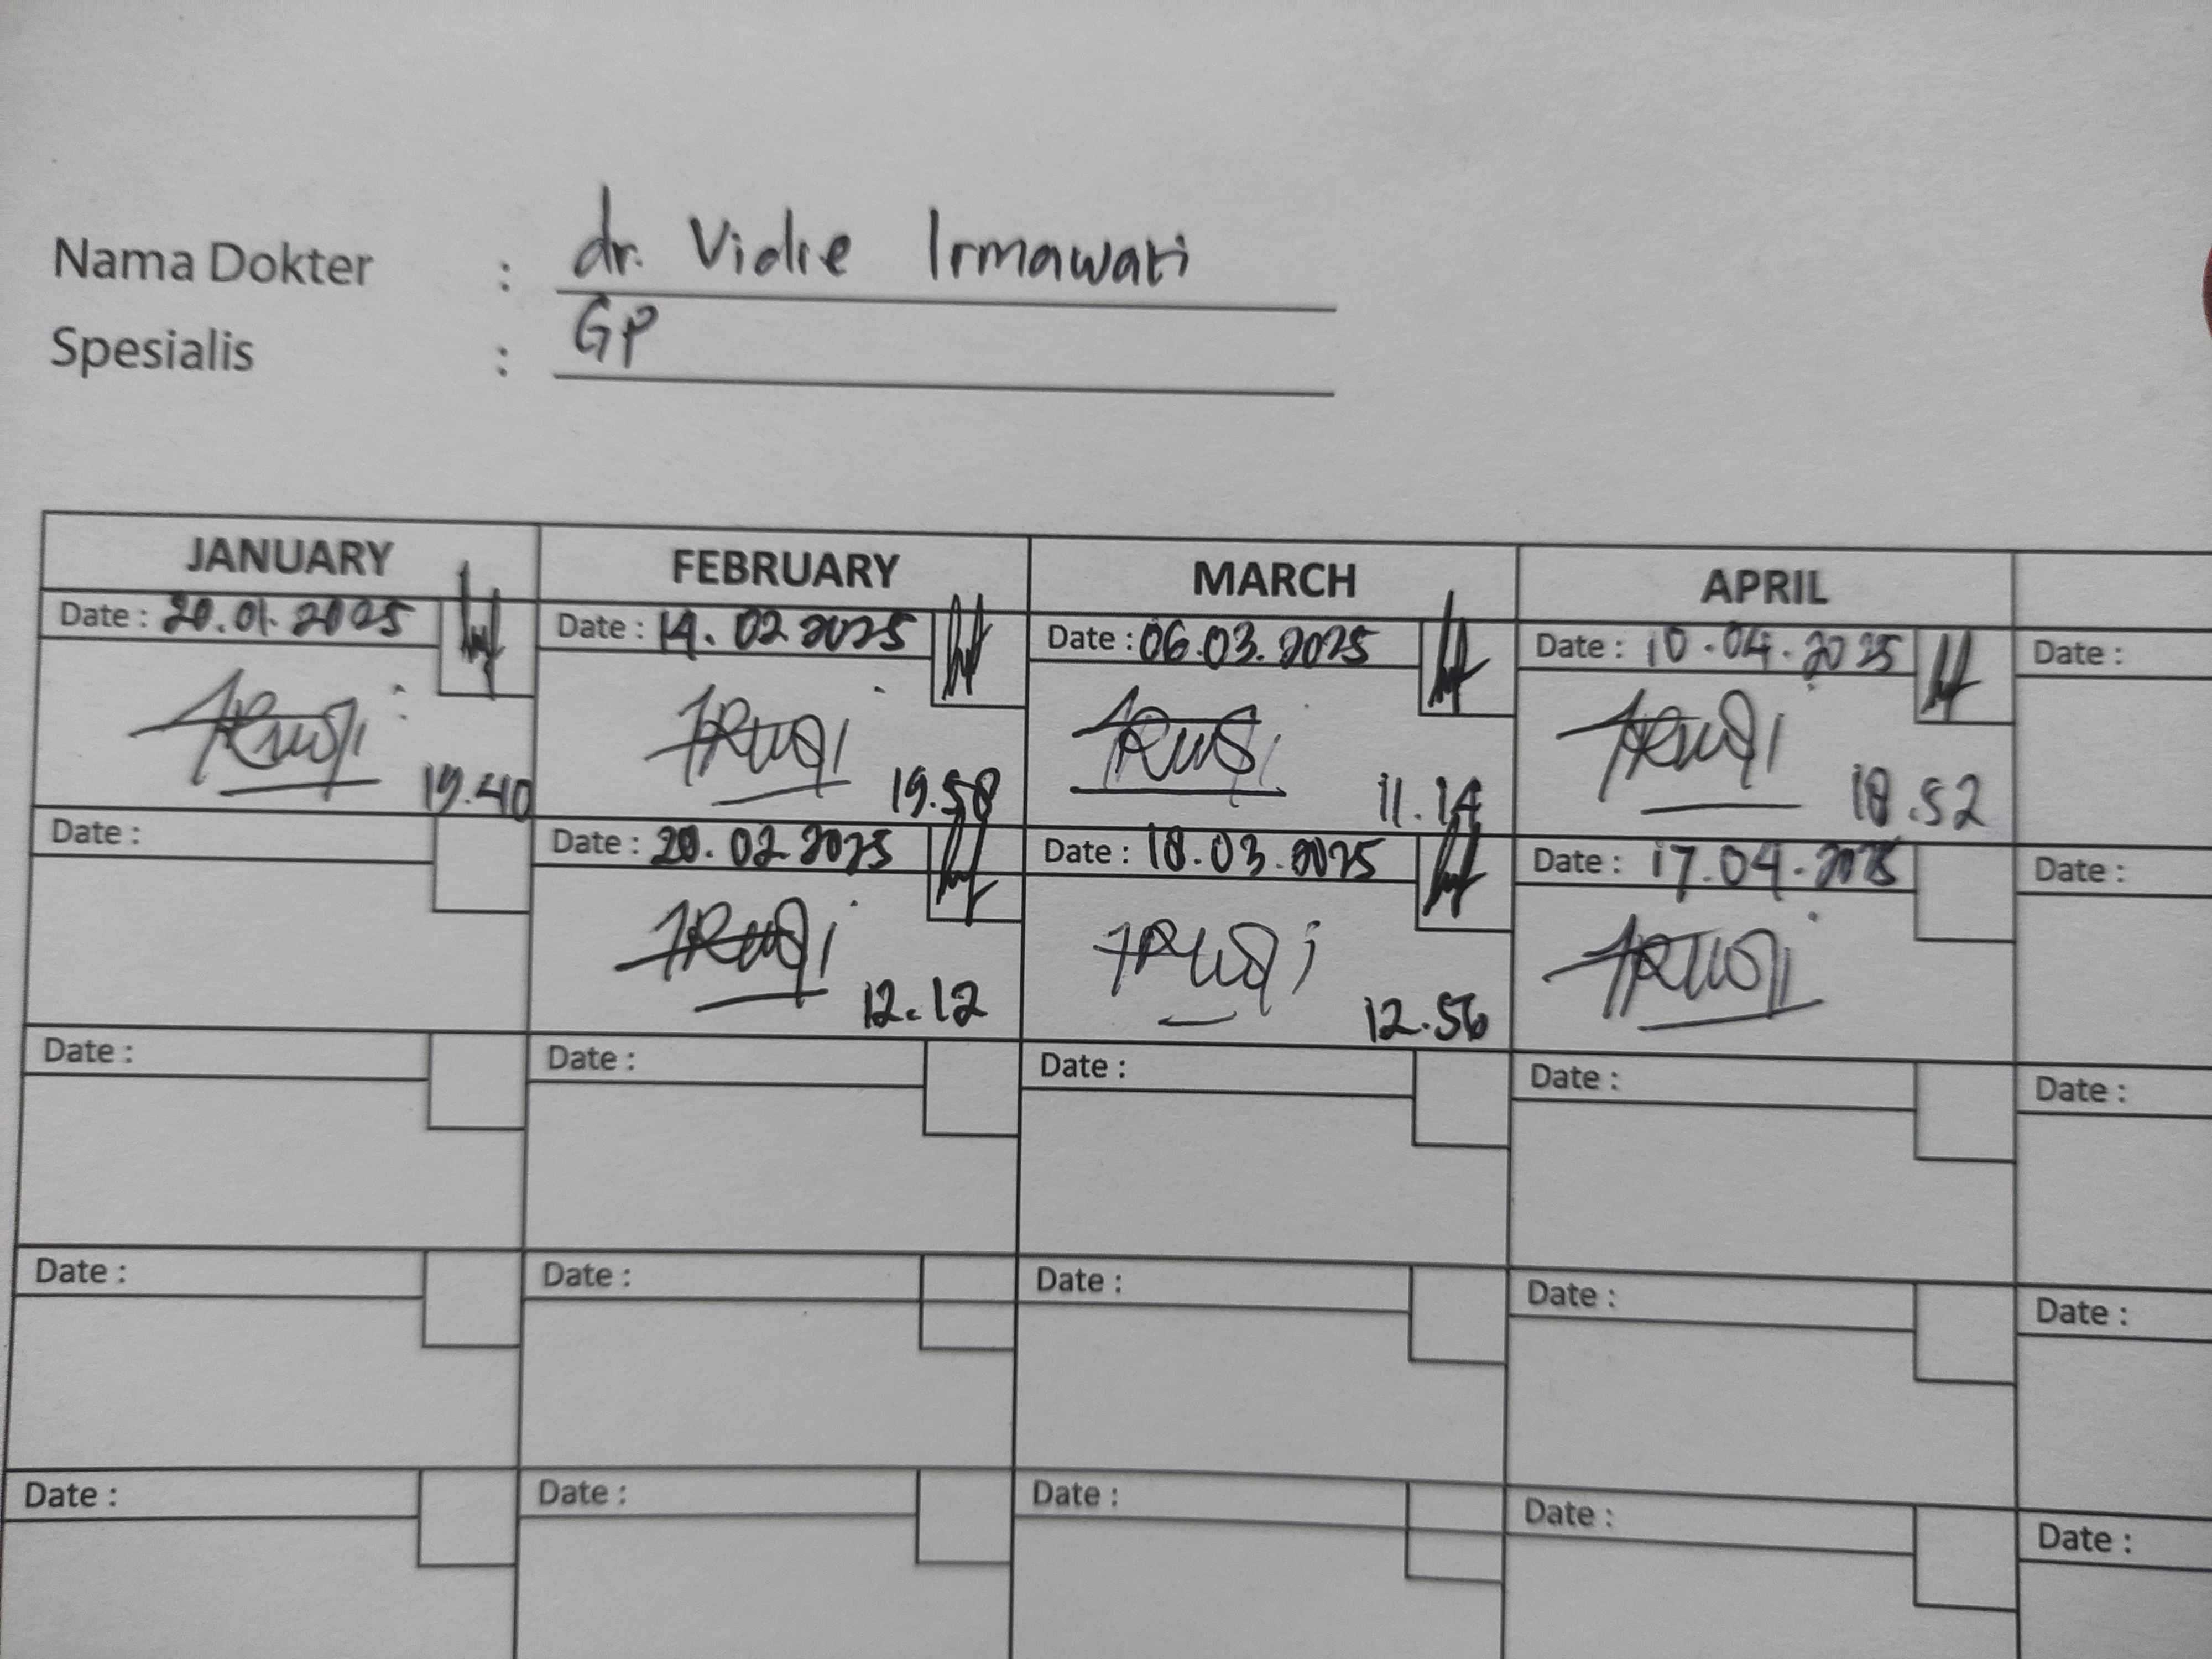 Nama Dokter : dr. Vidie Irmawati
Spesialis : GP
JANUARY FEBRUARY MARCH APRIL
Date : 20.01.2025 Date : 14.02.2025 Date : 06.03.2025 Date : 10.04.2025 Date :
19.40 19.58 11.14 18.52
Date : Date : 20.02.2025 Date : 18.03.2025 Date : 17.04.2025 Date :
12.12 12.56
Date : Date : Date : Date : Date :
Date : Date : Date : Date : Date :
Date : Date : Date : Date : Date :